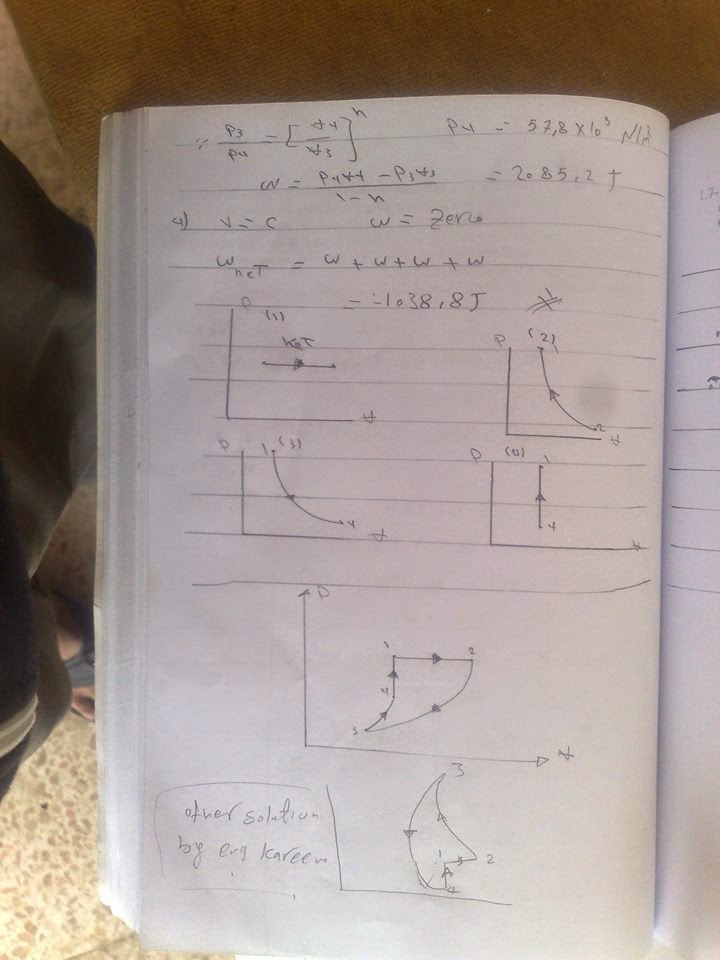 ∵ P3/P4 = [V4/V3]^n    P4 = 57,8 x 10^3 N/m2
w = P4V4 - P3V3 / 1-n = 2085,2 J
4) V=C    w = Zero
w neT = w + w + w + w
= -1038,8J
P (1)
V
P (2)
2
V
P 1 (3)
4
V
P (4) 1
4
V
P
1 2
4
3
V
3
1 2
4
other solution
by eng kareem